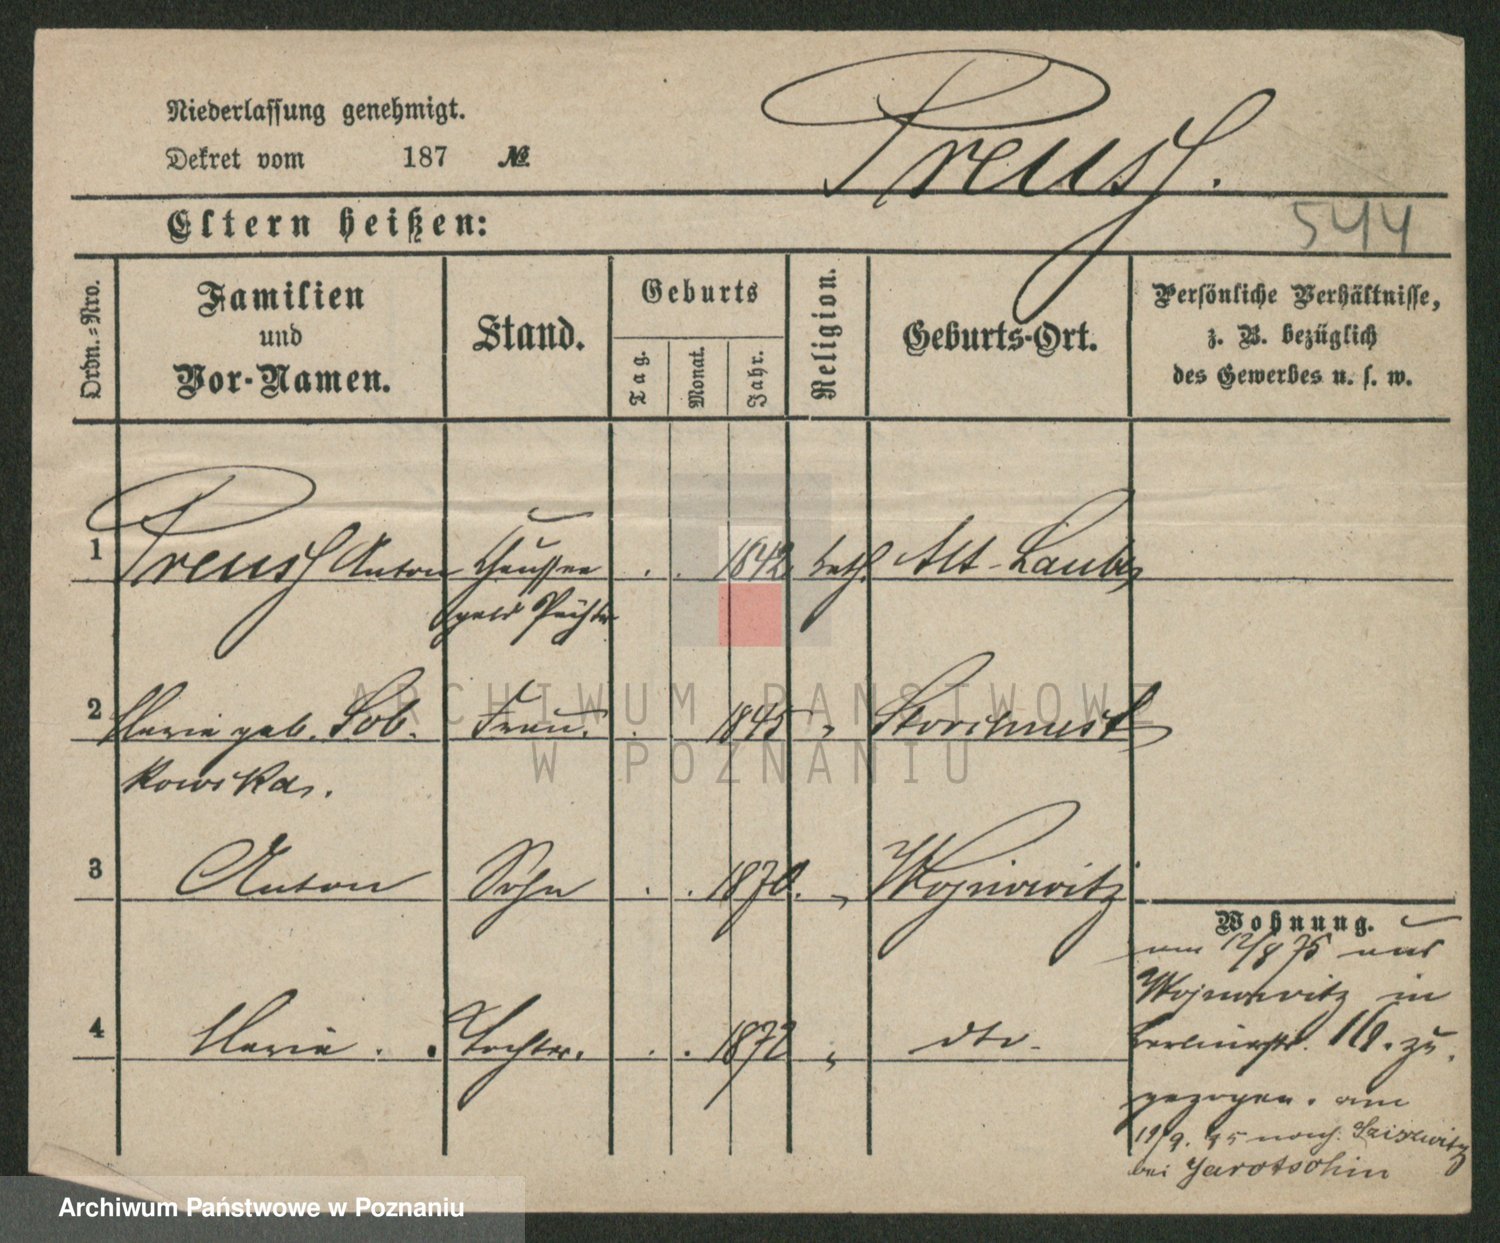 Niederlassung genehmigt.
Dekret vom 187 №
Preuss.
Eltern heißen:
544
Ordn.=Nro.
Familien
und
Vor-Namen.
Stand.
Geburts
Tag.
Monat.
Jahr.
Religion.
Geburts-Ort.
Persönliche Verhältnisse,
z. B. bezüglich
des Gewerbes u. s. w.
1 Preuss Anton Chaussee . . 1842 kath. Alt-Laube
geld Pächter
2 Maria geb. Sob- Frau. . 1845 „ Storchnest
kowska.
ARCHIWUM PAŃSTWOWE
W POZNANIU
3 Anton Sohn . . 1870. „ Wojnowitz
Wohnung.
am 12/8 75 aus
Wojnowitz in
4 Maria . . Tochter. . . 1872 „ dto.
Berlinerstr. 16. zu-
gezogen. am
19/9. 75 nach
bei Jarotschin
Archiwum Państwowe w Poznaniu